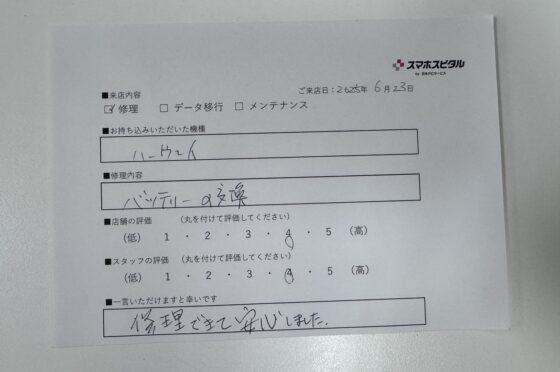 スマホスピタル
■来店内容
ご来店日：2025年 6月23日
☑ 修理 □ データ移行 □ メンテナンス
■お持ち込みいただいた機種
ハーウェイ
■修理内容
バッテリーの交換
■店舗の評価 （丸を付けて評価してください）
（低） 1 ・ 2 ・ 3 ・ 4 ・ 5 （高）
■スタッフの評価 （丸を付けて評価してください）
（低） 1 ・ 2 ・ 3 ・ 4 ・ 5 （高）
■一言いただけますと幸いです
修理できて安心しました.